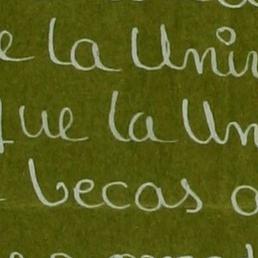 e la Univ
que la Un
becas a